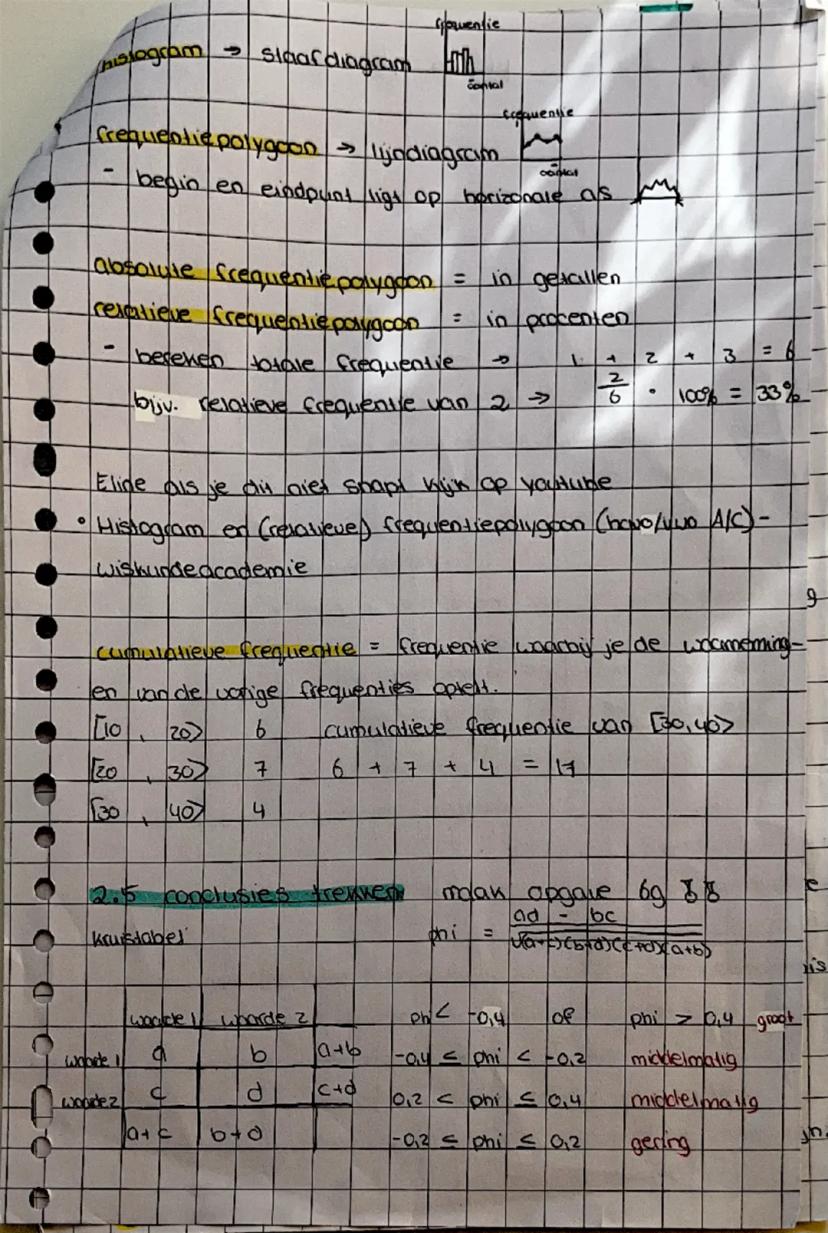 frequentie
histogram → staafdiagram
aantal
frequentie
frequentiepolygoon → lijndiagram
aantal
- begin en eindpunt ligt op horizonale as
absolute frequentiepolygoon = in getallen
relatieve frequentiepolygoon = in procenten
- bereken totale frequentie → 1 + 2 + 3 = 6
bijv. relatieve frequentie van 2 → 2/6 · 100% = 33%
Elide als je dit niet snapt kijk op youtube
• Histogram en (relatieve) frequentiepolygoon (havo/vwo A/C) -
wiskundeacademie
g
cumulatieve frequentie = frequentie waarbij je de waarneming-
en van de vorige frequenties optelt.
[10 , 20> 6 cumulatieve frequentie van [30,40>
[20 , 30> 7 6 + 7 + 4 = 17
[30 , 40> 4
2.5 conclusies trekken maak opgave 69
e
kruistabel phi = ad - bc / √(a+c)(b+d)(c+d)(a+b)
is
waarde 1 waarde 2 phi < -0,4 of phi > 0,4 groot
waarde 1 a b a+b -0,4 ≤ phi < -0,2 middelmatig
waarde 2 c d c+d 0,2 < phi ≤ 0,4 middelmatig
a+c b+d -0,2 ≤ phi ≤ 0,2 gering